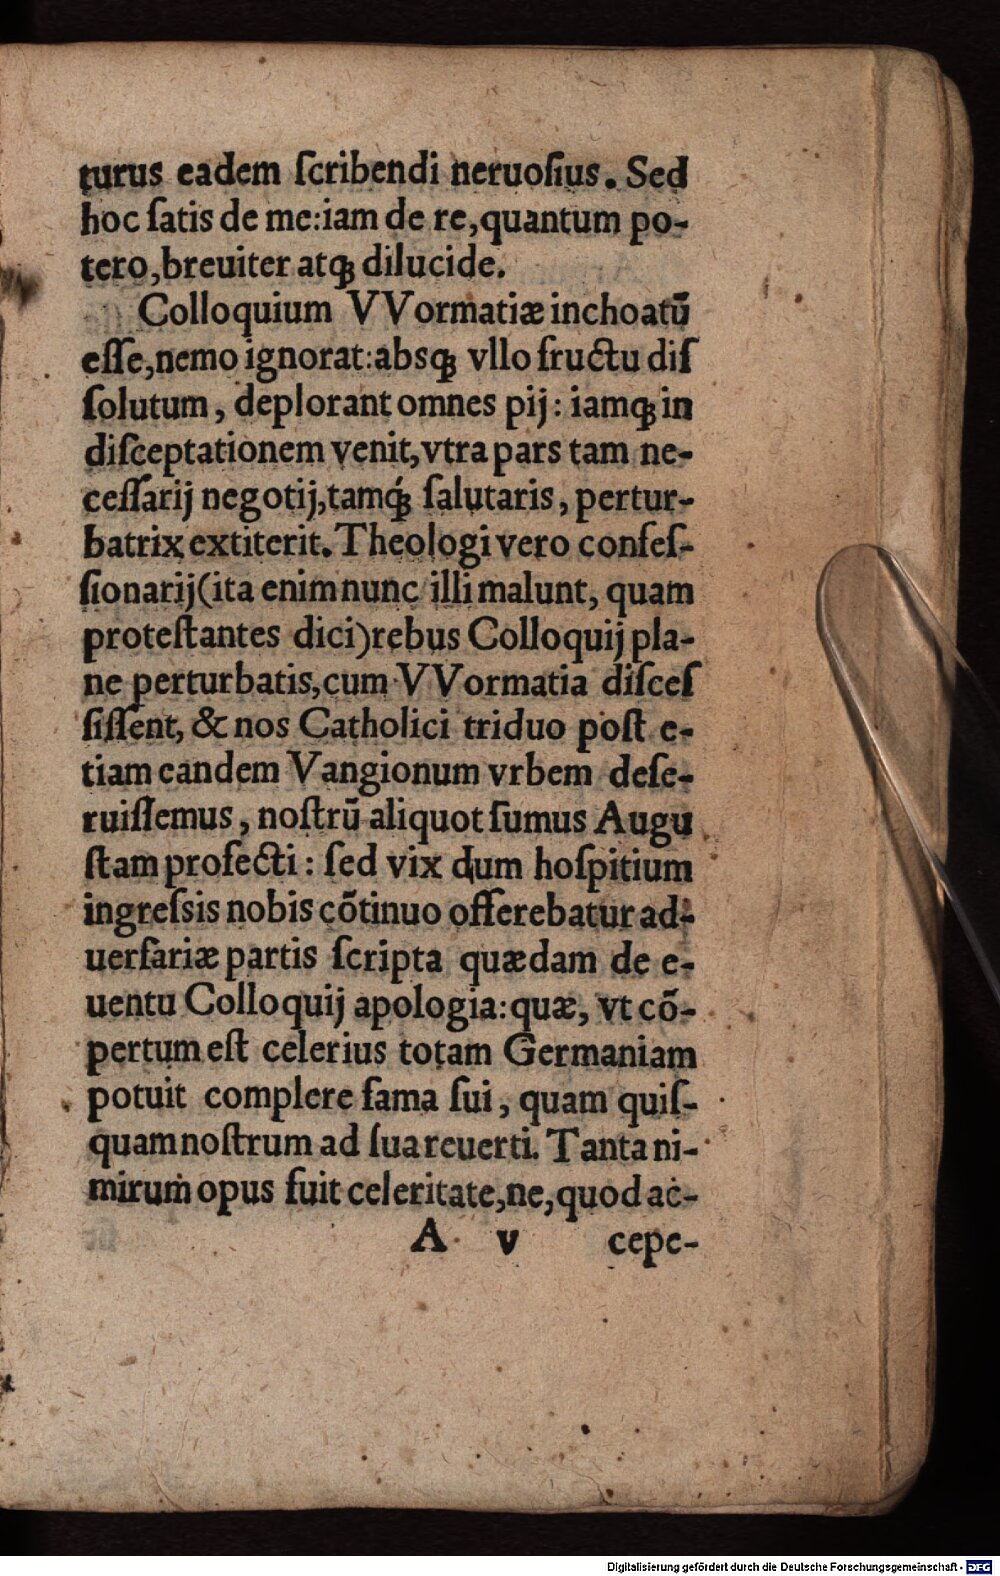 turus eadem ſcribendi neruoſius. Sed
hoc ſatis de me:iam de re,quantum po-
tero,breuiter atqꝫ dilucide.
Colloquium VVormatiæ inchoatū
eſſe,nemo ignorat:absqꝫ vllo fructu diſ
ſolutum, deplorant omnes pij: iamqꝫ in
diſceptationem venit,vtra pars tam ne-
ceſſarij negotij,tamq́ꝫ ſalutaris, pertur-
batrix extiterit. Theologi vero confeſ-
ſionarij(ita enim nunc illi malunt, quam
proteſtantes dici)rebus Colloquij pla-
ne perturbatis,cum VVormatia diſceſ
ſiſſent, & nos Catholici triduo poſt e-
tiam eandem Vangionum vrbem deſe-
ruiſſemus, noſtrū aliquot ſumus Augu
ſtam profecti: ſed vix dum hoſpitium
ingreſsis nobis cōtinuo offerebatur ad-
uerſariæ partis ſcripta quædam de e-
uentu Colloquij apologia:quæ, vt cō-
pertum eſt celerius totam Germaniam
potuit complere fama ſui, quam quiſ-
quam noſtrum ad ſua reuerti. Tanta ni-
mirum opus fuit celeritate,ne,quod ac-
A v cepe-
Digitalisierung gefördert durch die Deutsche Forschungsgemeinschaft - DFG